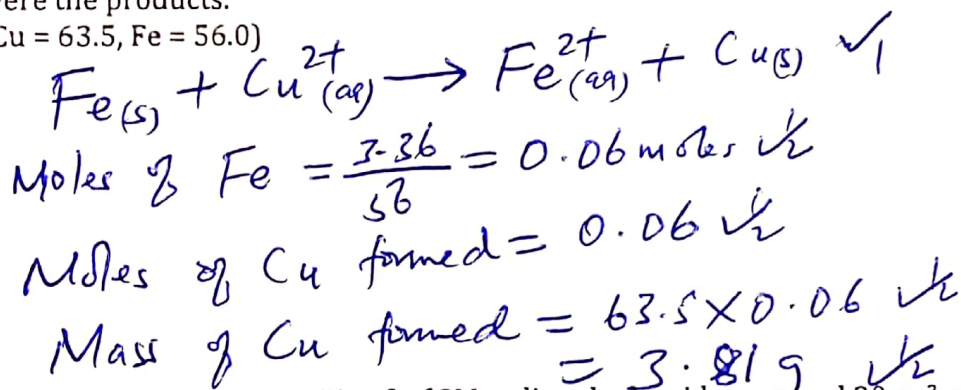 Cu = 63.5, Fe = 56.0)
Fe(s) + Cu²⁺(aq) → Fe²⁺(aq) + Cu(s) ✓1
Moles of Fe = 3.36/56 = 0.06 moles ✓½
Moles of Cu formed = 0.06 ✓½
Mass of Cu formed = 63.5 × 0.06 ✓½
= 3.81 g ✓½